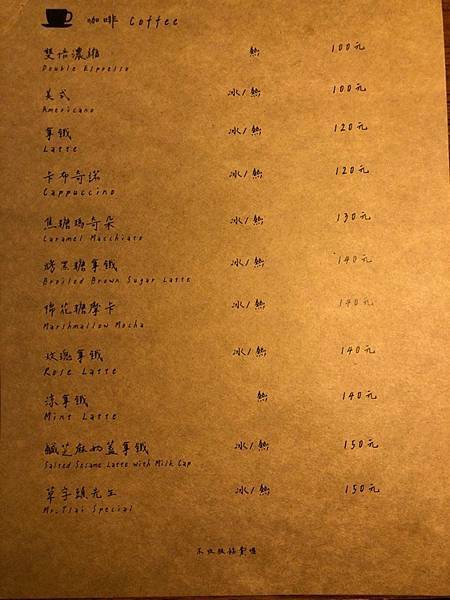 咖啡 Coffee
雙倍濃縮 熱 100元
Double Espresso
美式 冰/熱 100元
Americano
拿鐵 冰/熱 120元
Latte
卡布奇諾 冰/熱 120元
Cappuccino
焦糖瑪奇朵 冰/熱 130元
Caramel Macchiato
烤黑糖拿鐵 冰/熱 140元
Broiled Brown Sugar Latte
棉花糖摩卡 冰/熱 140元
Marshmallow Mocha
玫瑰拿鐵 冰/熱 140元
Rose Latte
涼拿鐵 熱 140元
Mint Latte
鹹芝麻奶蓋拿鐵 冰/熱 150元
Salted Sesame Latte with Milk Cap
草字頭先生 冰/熱 150元
Mr.Tsai Special
不收服務費唷